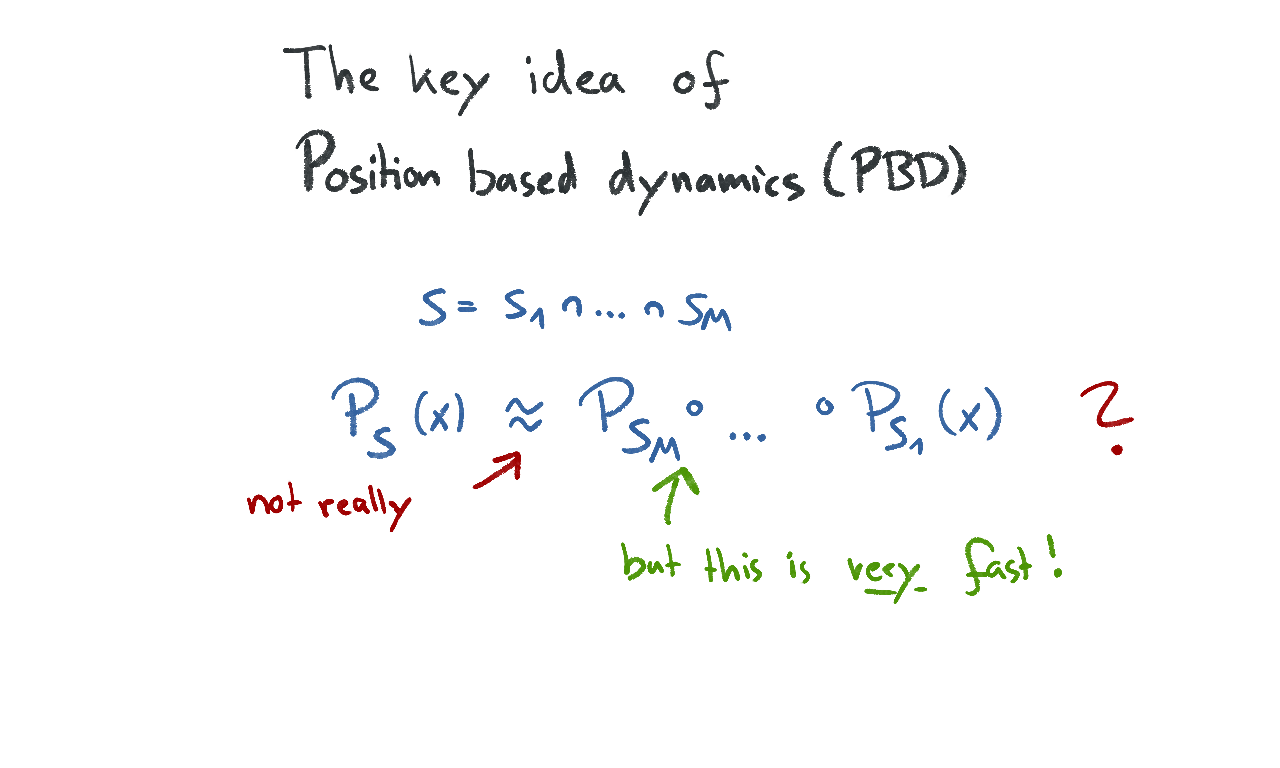 The key idea of
Position based dynamics (PBD)
S = S₁ ∩ ... ∩ S_M
P_S (x) ≈ P_{S_M} ∘ ... ∘ P_{S₁} (x) ?
not really
but this is very fast!